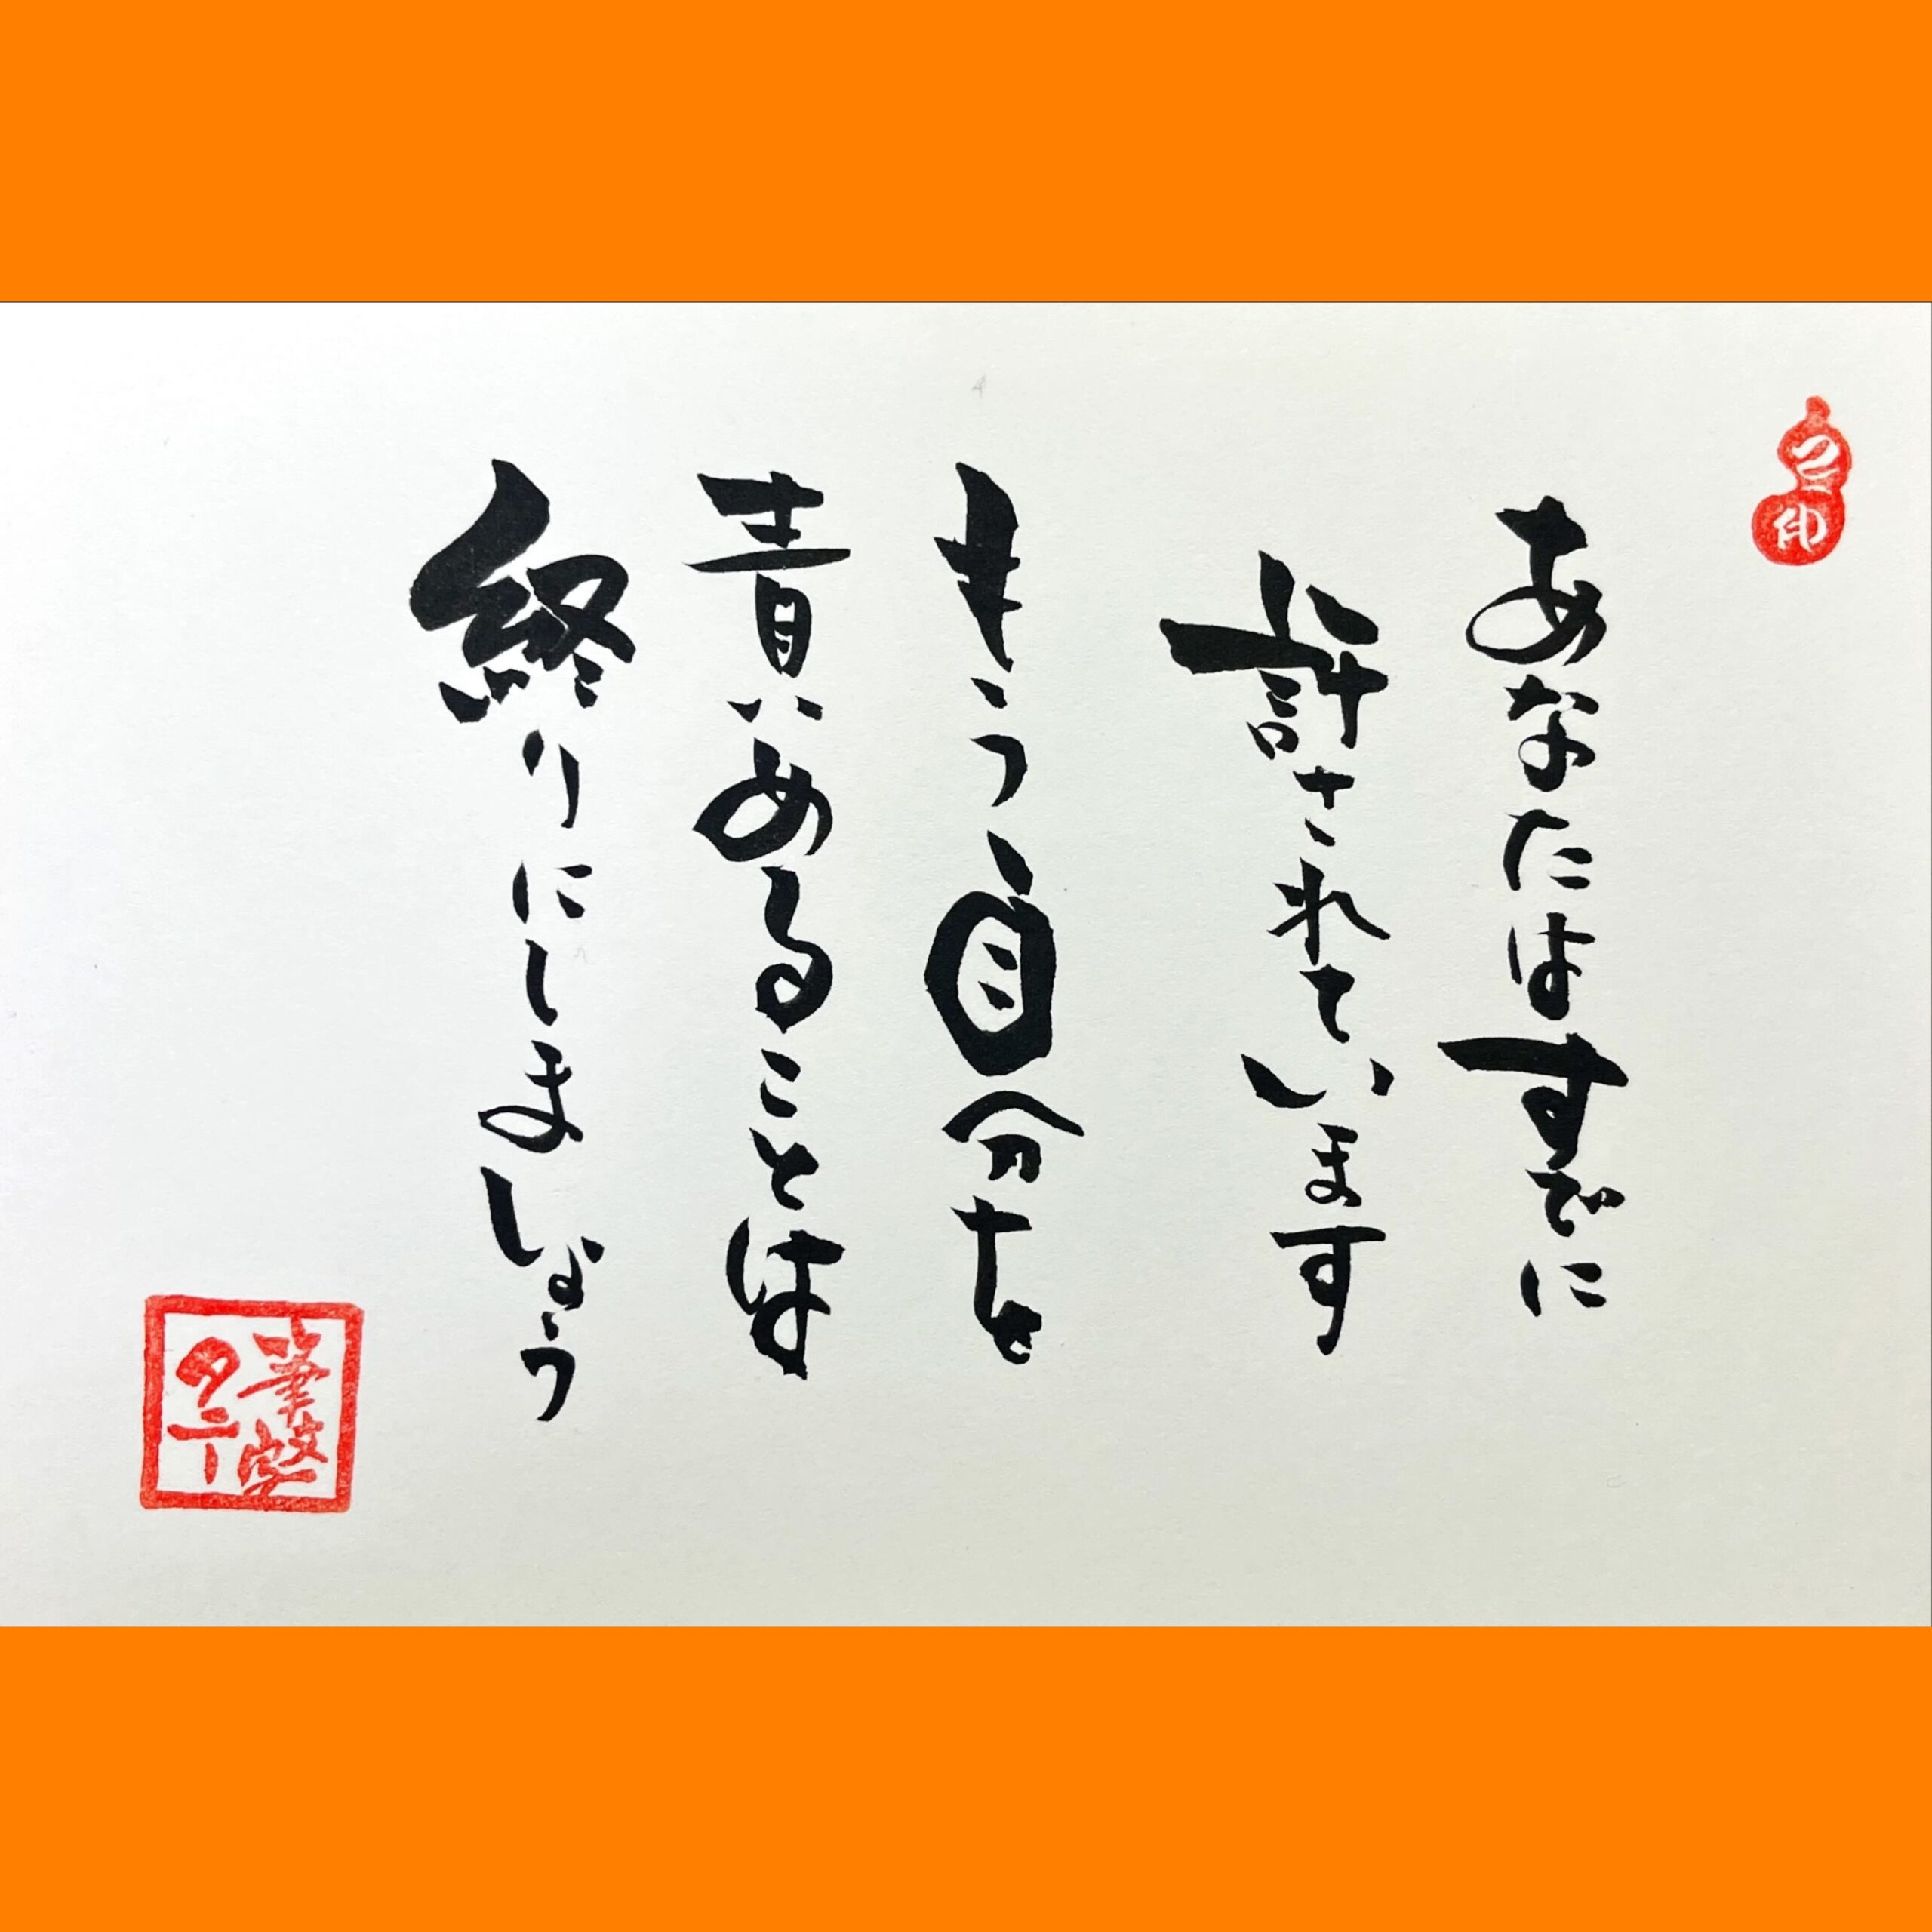 あなたはすでに
許されています
もう自分を
責めることは
終りにしましょう
筆文字
タニー